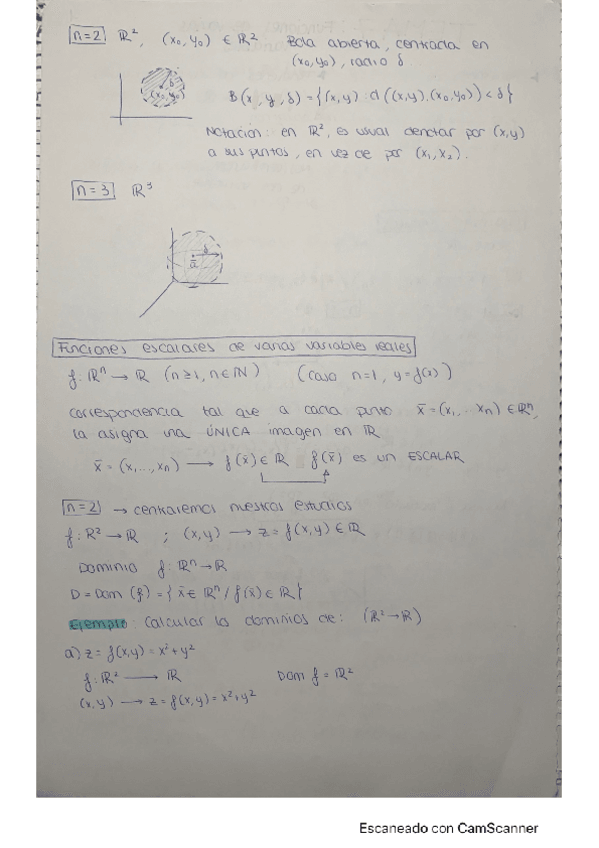 n=2 ℝ², (x₀,y₀) ∈ ℝ² Bola abierta, centrada en
(x₀,y₀), radio δ
δ
(x₀,y₀)
B(x,y,δ) = {(x,y) : d((x,y),(x₀,y₀)) < δ}
Notación: en ℝ², es usual denotar por (x,y)
a sus puntos, en vez de por (x₁,x₂).
n=3 ℝ³
δ
ā
Funciones escalares de varias variables reales
f: ℝⁿ → ℝ (n≥1, n∈ℕ) (caso n=1, y=f(x))
correspondencia tal que a cada punto x̄=(x₁,...xₙ) ∈ ℝⁿ,
la asigna una ÚNICA imagen en ℝ
x̄ = (x₁,...,xₙ) → f(x̄) ∈ ℝ f(x̄) es un ESCALAR
n=2 → centraremos nuestros estudios
f: ℝ² → ℝ ; (x,y) → z = f(x,y) ∈ ℝ
Dominio f: ℝⁿ → ℝ
D = Dom (f) = { x̄ ∈ ℝⁿ / f(x̄) ∈ ℝ}
Ejemplo: Calcular los dominios de: (ℝ² → ℝ)
a) z = f(x,y) = x² + y²
f: ℝ² → ℝ Dom f = ℝ²
(x,y) → z = f(x,y) = x² + y²
Escaneado con CamScanner